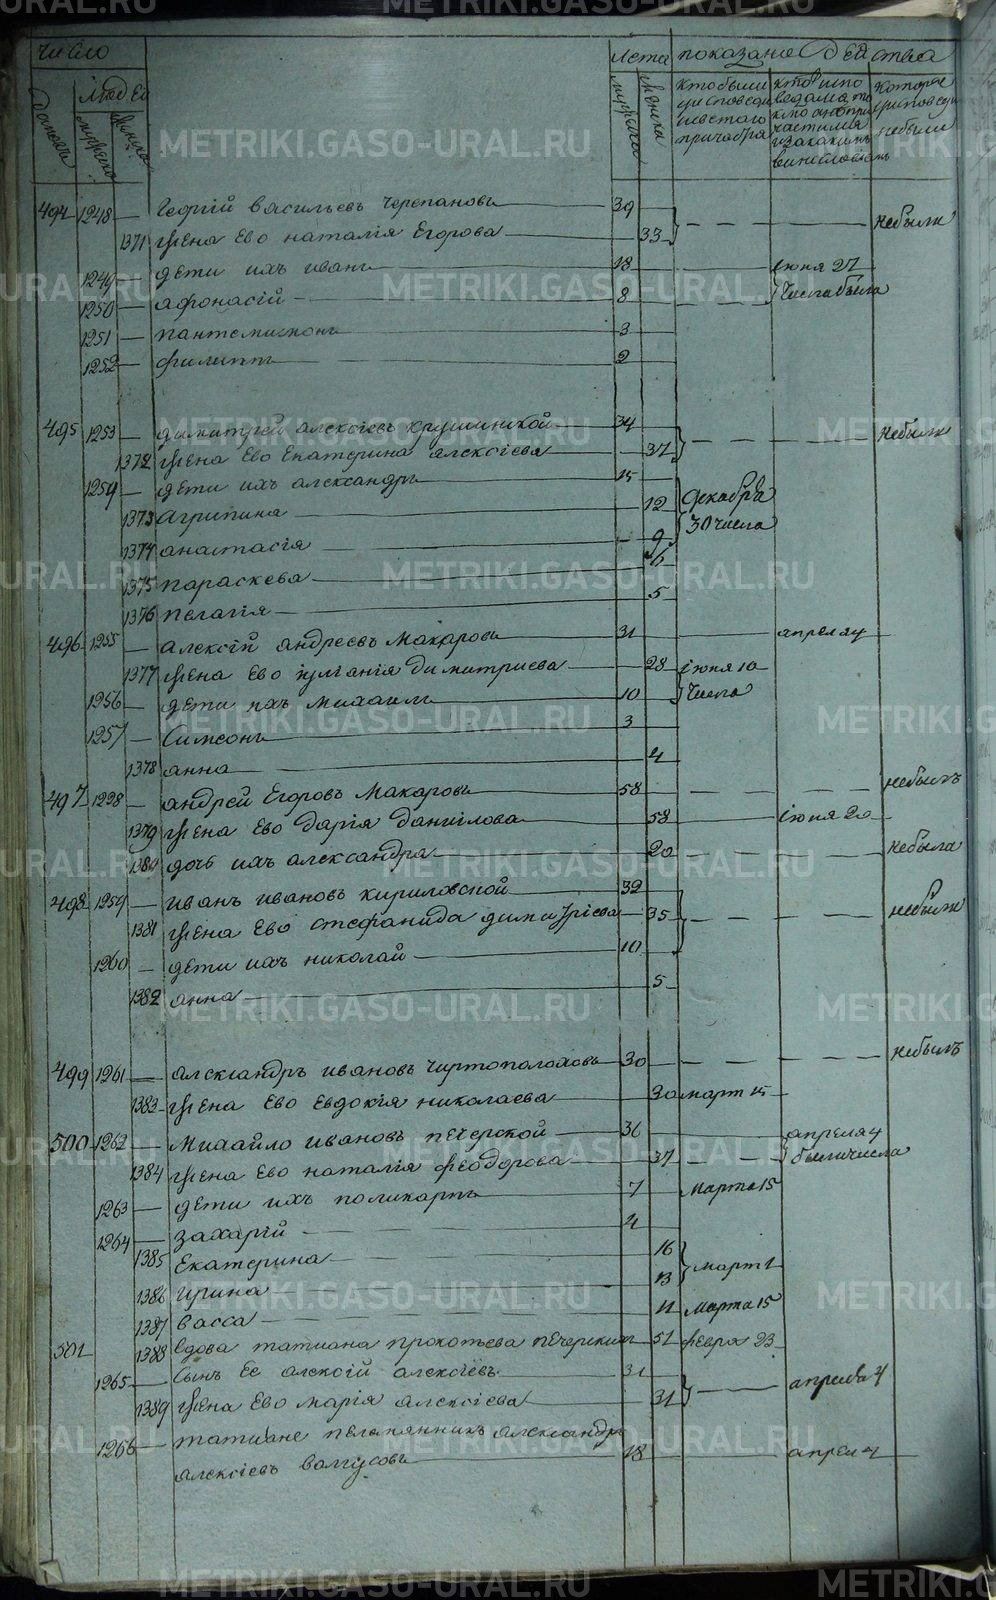 число лета показание действа
дворовъ людей мужеска женска мужеска женска
кто были у исповеди и святого причастия
кто исповедался токмо а не причастился и за каким винословием
которые у исповеди не были
494 1248 Георгий васильевъ черепановъ 39 небыли
1371 жена Ево наталия Егорова 33
1249 дети ихъ иванъ 18 июня 27
1250 афонасий 8 числа была
1251 пантемионъ 3
1252 филиппъ 2
495 1253 димитрей алексиевъ крушинской 34 небыли
1372 жена Ево Екатерина алексиева 37
1254 дети ихъ александръ 15
1373 Агрипина 12 декабря
1374 анастасия 9 30 числа
1375 параскева 6
1376 пелагия 5
496 1255 алексий андреевъ Макаровъ 31 апреля 4
1377 жена Ево иулиания димитриева 28 июня 10
1256 дети ихъ михаилъ 10 числа
1257 Симеонъ 3
1378 анна 4
497 1258 андрей Егоровъ Макаровъ 58 небылъ
1379 жена Ево дария данилова 58 июня 20
1380 дочь ихъ александра 20 небыла
498 1259 иванъ ивановъ кириловской 32 небыли
1381 жена Ево стефанида димитриева 35
1260 дети ихъ николай 10
1382 анна 5
499 1261 александръ ивановъ чиртополоховъ 30 небылъ
1383 жена Ево Евдокия николаева 30 март 15
500 1262 Михайло ивановъ печерской 36 апреля 4
1384 жена Ево наталия феодорова 37 были числа
1263 дети ихъ поликарпъ 7 Марта 15
1264 захарий 4
1385 Екатерина 16
1386 ирина 13 март 1
1387 васса 11 Марта 15
501 1388 вдова татиана прокопьева печерскихъ 51 февра 23
1265 Сынъ Ее алексий алексиевъ 31
1389 жена Ево мария алексиева 31 апреля 4
1266 татиане пелемянникъ александръ
алексиевъ волгусовъ 18 апрел 4
METRIKI.GASO-URAL.RU